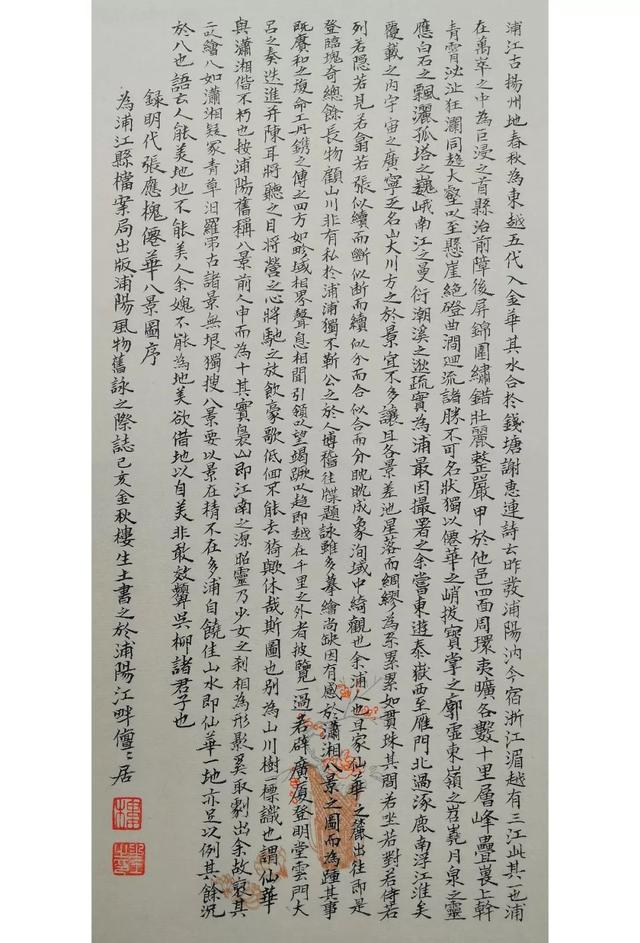 浦江古揚州地春秋為東越五代入金華其水合於錢塘謝惠連詩云昨發浦陽汭今宿浙江湄越有三江此其一也浦
在萬峯之中為巨浸之首縣治前障後屏錦圍繡錯壯麗整嚴甲於他邑四面周環夷曠各數十里層峰疊嶂上幹
青霄泌沚狂瀾同趨大壑以至懸崖絕磴曲澗迴流諸勝不可名狀獨以僊華之峭拔寶掌之廓虛東嶺之岧嶢月泉之靈
應白石之飄灑孤塔之巍峨南江之曼衍潮溪之逖疏實為浦最因撮署之余嘗東遊泰嶽西至雁門北過涿鹿南浮江淮矣
覆載之內宇宙之廣寧乏名山大川方之於景宜不多讓且各景差池星落而綢繆為系累累如貫珠其間若坐若對若侍若
列若隱若見若翕若張似續而斷似斷而續似分而合似合而分眈眈成象洵域中綺觀也余浦人也且家仙華之麓出往即是
登臨塊奇總餘長物顧山川非有私於浦浦獨不靳公之於人博稽往牒題詠雖多摹繪尚缺因有感於瀟湘八景之圖而為踵其事
既賡和之復命工丹鐫之傳之四方如畛域相界聲息相聞引領以望竭蹶以趨即越在千里之外者披覽一過若辟廣廈登明堂雲門大
呂之奏迭進并陳耳將聽之目將營之心將馳之放飲豪歌低佪不能去猗歟休哉斯圖也別為山川樹一標識也謂仙華
與瀟湘偕不朽也按浦陽舊稱八景前人申而為十其實裊山即江南之源昭靈乃少女之刹相為形影奚取劇出余故裒其
二以繪八如瀟湘疑冢青草汨羅弔古諸景無垠獨搜八景要以景在精不在多浦自饒佳山水即仙華一地亦足以例其餘況
於八也語云人能美地地不能美人余媿不能為地美欲借地以自美非敢效顰吳柳諸君子也
錄明代張應槐僊華八景圖序
為浦江縣檔案局出版浦陽風物舊詠之際誌己亥金秋樓生土書之於浦陽江畔儃儃居